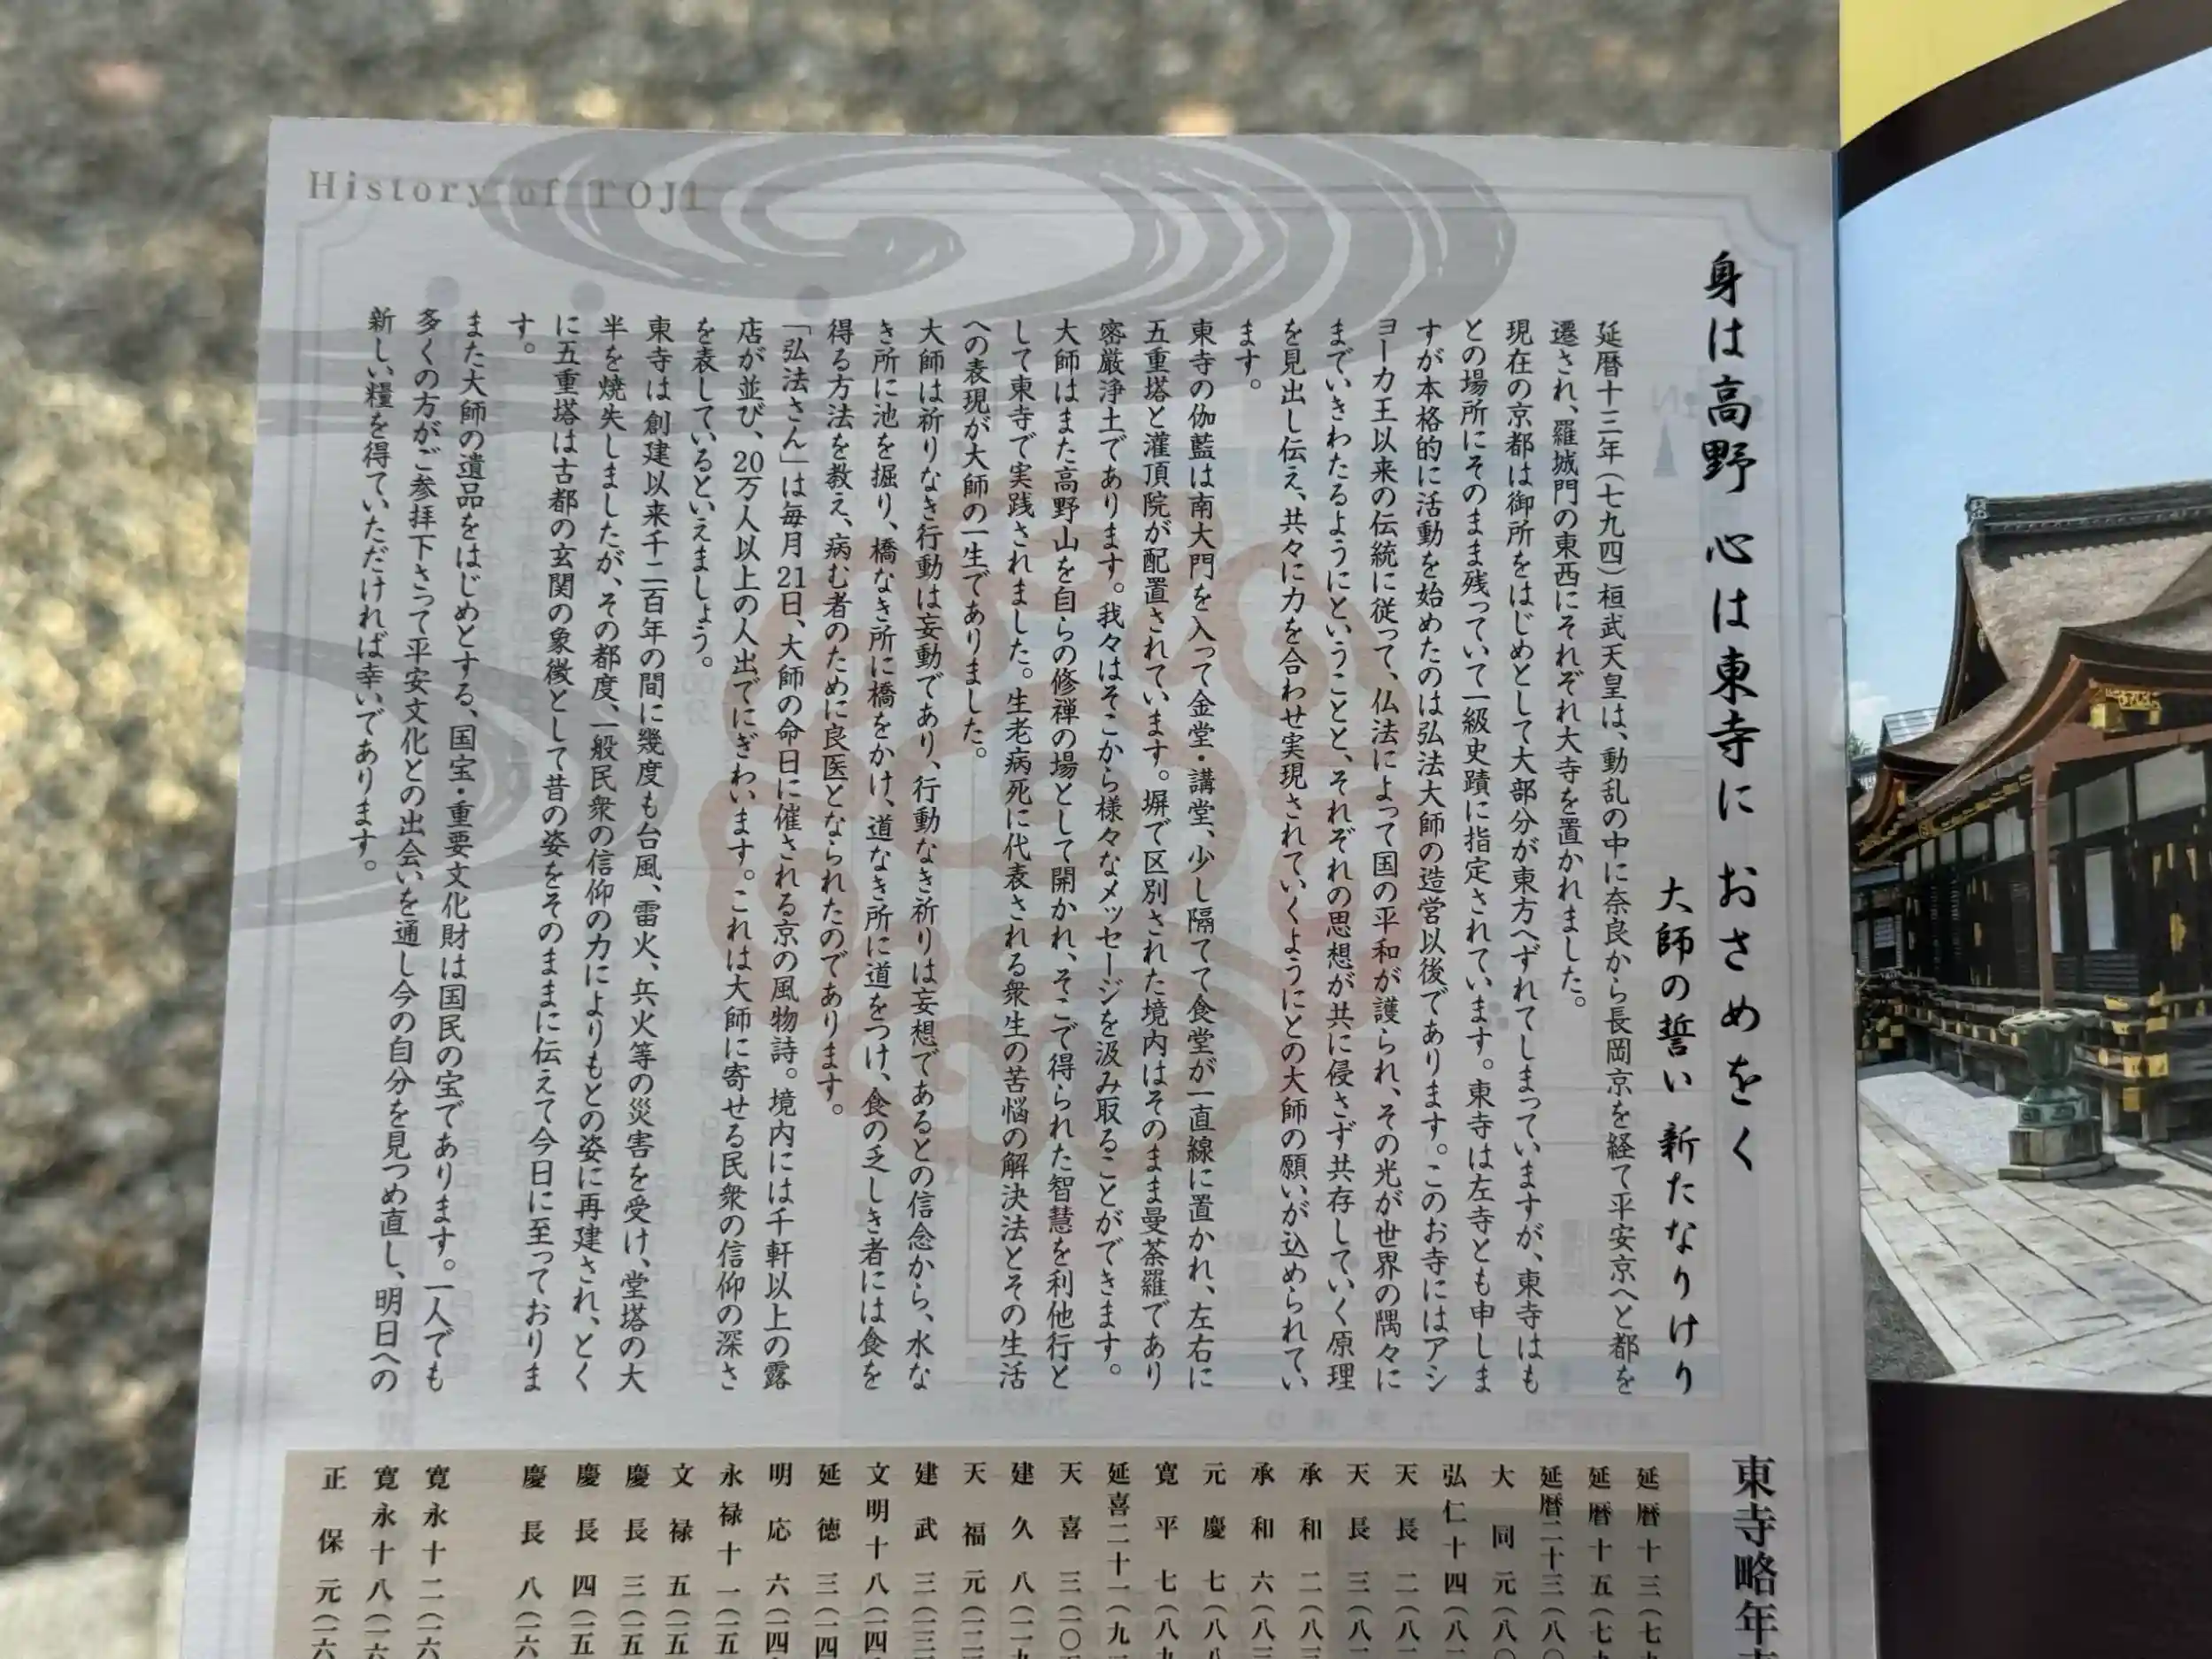 History of TOJI
身は高野 心は東寺に おさめをく
大師の誓い 新たなりけり
延暦十三年（七九四）桓武天皇は、動乱の中に奈良から長岡京を経て平安京へと都を
遷され、羅城門の東西にそれぞれ大寺を置かれました。
現在の京都は御所をはじめとして大部分が東方へずれてしまっていますが、東寺はも
との場所にそのまま残っていて一級史蹟に指定されています。東寺は左寺とも申しま
すが本格的に活動を始めたのは弘法大師の造営以後であります。このお寺にはアシ
ョーカ王以来の伝統に従って、仏法によって国の平和が護られ、その光が世界の隅々に
までいきわたるようにということと、それぞれの思想が共に侵さず共存していく原理
を見出し伝え、共々に力を合わせ実現されていくようにとの大師の願いが込められてい
ます。
東寺の伽藍は南大門を入って金堂・講堂、少し隔てて食堂が一直線に置かれ、左右に
五重塔と灌頂院が配置されています。塀で区別された境内はそのまま曼荼羅であり
密厳浄土であります。我々はそこから様々なメッセージを汲み取ることができます。
大師はまた高野山を自らの修禅の場として開かれ、そこで得られた智慧を利他行と
して東寺で実践されました。生老病死に代表される衆生の苦悩の解決法とその生活
への表現が大師の一生でありました。
大師は祈りなき行動は妄動であり、行動なき祈りは妄想であるとの信念から、水な
き所に池を掘り、橋なき所に橋をかけ、道なき所に道をつけ、食の乏しき者には食を
得る方法を教え、病む者のために良医となられたのであります。
「弘法さん」は毎月21日、大師の命日に催される京の風物詩。境内には千軒以上の露
店が並び、20万人以上の人出でにぎわいます。これは大師に寄せる民衆の信仰の深さ
を表しているといえましょう。
東寺は創建以来千二百年の間に幾度も台風、雷火、兵火等の災害を受け、堂塔の大
半を焼失しましたが、その都度、一般民衆の信仰の力によりもとの姿に再建され、とく
に五重塔は古都の玄関の象徴として昔の姿をそのままに伝えて今日に至っておりま
す。
また大師の遺品をはじめとする、国宝・重要文化財は国民の宝であります。一人でも
多くの方がご参拝下さって平安文化との出会いを通し今の自分を見つめ直し、明日への
新しい糧を得ていただければ幸いであります。
東寺略年
延暦十三（七
延暦十五（七
延暦二十三（八〇
大同元（八〇
弘仁十四（八
天長二（八
天長三（八
承和二（八三
承和六（八三
元慶七（八八
寛平七（八九
延喜二十一（九
天喜三（一〇
建久八（一一
天福元（一二
建武三（一三
文明十八（一四
延徳三（一四
明応六（一四
永禄十一（一五
文禄五（一五
慶長三（一五
慶長四（一五
慶長八（一六
寛永十二（一六
寛永十八（一六
正保元（一六